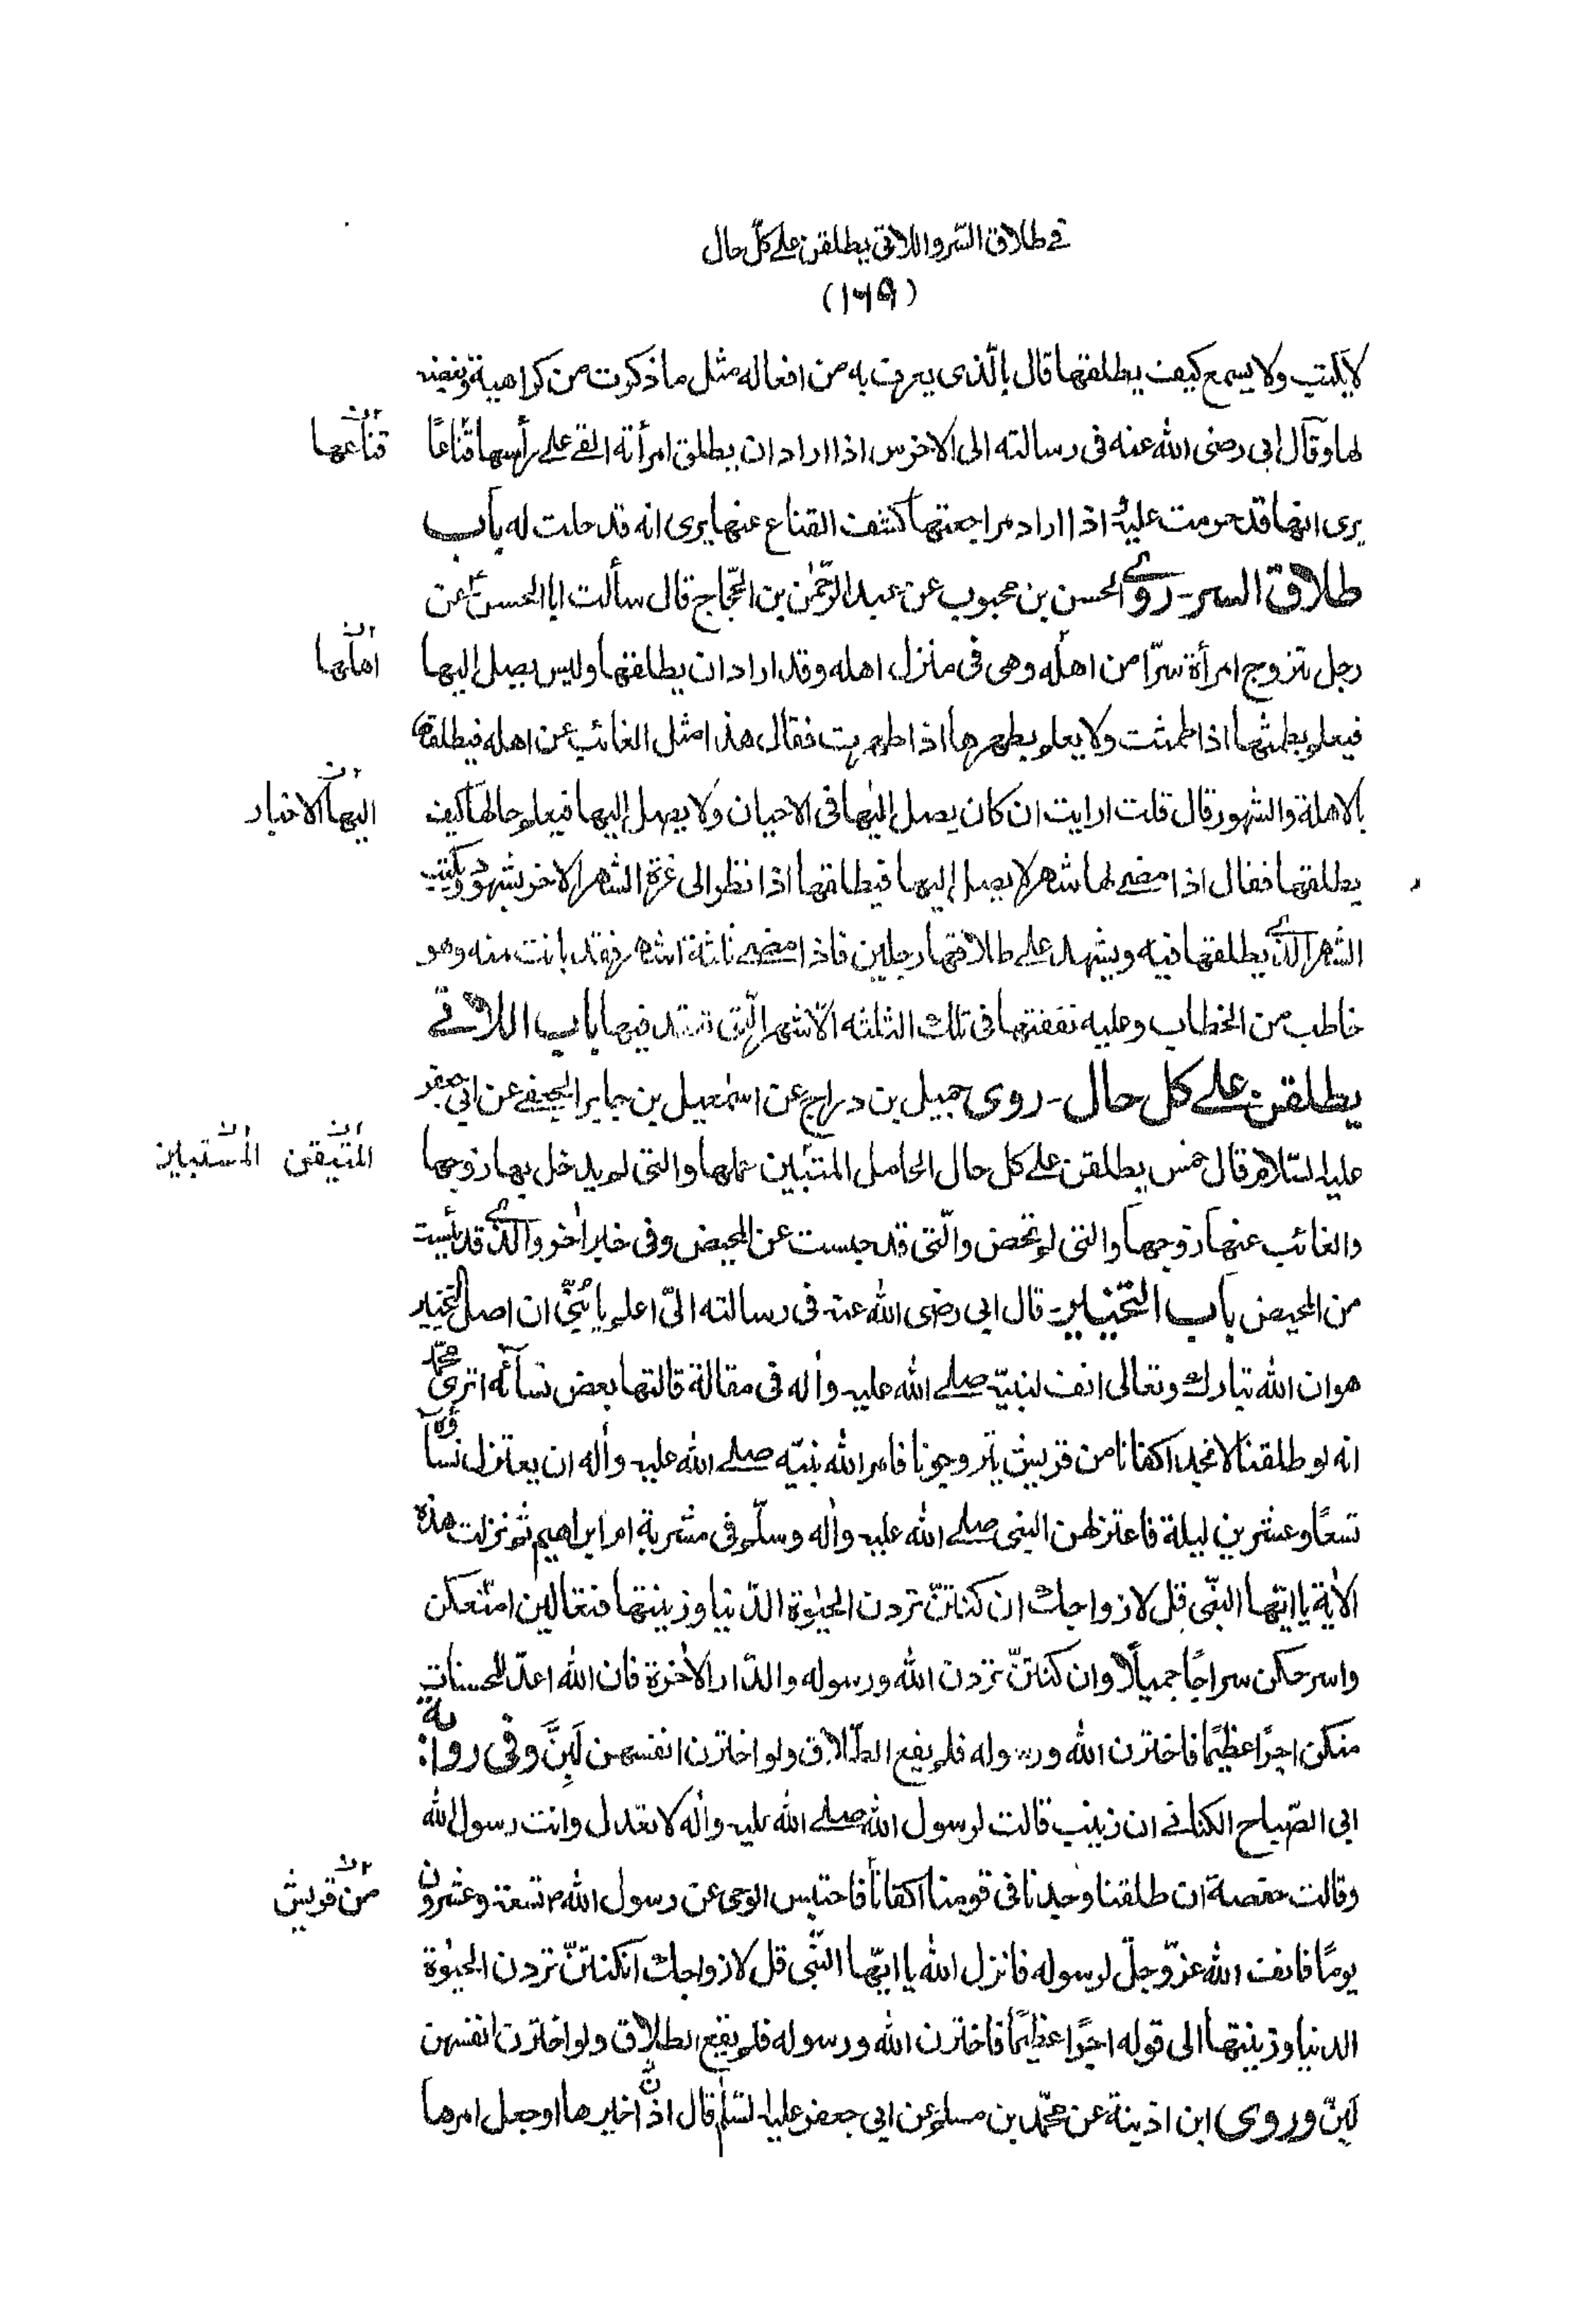 في طلاق السّر واللاتي يطلقن على كلّ حال
(١٦٩)
لا يكتب ولا يسمع كيف يطلقها قال بالّذى يعرف به من افعاله مثل ما ذكرت من كراهية وبغضه
لها وقال ابى رضى الله عنه فى رسالته الى الاخرس اذا اراد ان يطلق امرأته القى على رأسها قناعًا
قناعها
يرى انها قد حرمت عليه اذا اراد مراجعتها كشف القناع عنها يرى انه قد حلت له باب
طلاق السر - روى الحسن بن محبوب عن عبد الرّحمٰن بن الحجّاج قال سألت ابا الحسن عن
رجل تزوج امرأة سرّا من اهله وهى فى منزل اهله وقد اراد ان يطلقها وليس يصل اليها
اهلها
فيعلم بطمثها اذا طمثت ولا يعلم بطهرها اذا طهرت فقال هذا مثل الغائب عن اهله فيطلقها
بالاهلة والشهور قال قلت ارايت ان كان يصل اليها فى الاحيان ولا يصل اليها فيعلم حالها كيف
اليها الاخبار
يطلقها فقال اذا مضى لها شهر لا يصل اليها فيطلقها اذا نظر الى غرة الشهر الاخر بشهود ويكتب
الشهر الذى يطلقها فيه ويشهد على طلاقها رجلين فاذا مضى ثلثة اشهر فقد بانت منه وهو
خاطب من الخطاب وعليه نفقتها فى تلك الثلثه الاشهر الّتى تعتد فيها باب اللاتي
يطلقن على كل حال - روى جميل بن دراج عن اسمٰعيل بن جابر الجعفى عن ابى جعفر
عليه السّلام قال خمس يطلقن على كل حال الحامل المتبين حملها والتى لم يدخل بها زوجها
المتيقن المستبان
والغائب عنها زوجها والتى لم تحض والّتى قد جلست عن المحيض وفى خبر اٰخر والذى قد يئست
من المحيض باب التخيير - قال ابى رضى الله عنه فى رسالته الىّ اعلم يا بُنَىّ ان اصل التخيير
هو ان الله تبارك وتعالى انف لنبيّه صلى الله عليه واٰله فى مقالة قالتها بعض نسائه اترى محمّد
انه لو طلقنا لا نجد اكفانا من قريش يتزوجونا فامر الله نبيّه صلى الله عليه واٰله ان يعتزل نساؤه
تسعًا وعشرين ليلة فاعتزلهن النبى صلى الله عليه واٰله وسلّم فى مشربة ام ابراهيم ثم نزلت هذه
الاٰية يا ايّها النّبى قل لازواجك ان كنتنّ تردن الحيٰوة الدّنيا وزينتها فتعالين امتّعكن
واسرحكن سراحًا جميلًا وان كنتنّ تردن الله ورسوله والدّار الاٰخرة فان الله اعدّ للمحسنات
منكن اجرًا عظيمًا فاخترن الله ورسوله فلم يقع الطّلاق ولو اخترن انفسهن لَبِنَّ وفى رواية
ابى الصّباح الكنانى ان زينب قالت لرسول الله صلى الله عليه واٰله لا تعدل وانت رسول الله
وقالت حفصة ان طلقنا وجدنا فى قومنا اكفانا فاحتبس الوحى عن رسول الله ص تسعة وعشرون
من قريش
يومًا فانف الله عزّ وجلّ لرسوله فانزل الله يا ايّها النّبى قل لازواجك ان كنتنّ تردن الحيٰوة
الدنيا وزينتها الى قوله اجرًا عظيمًا فاخترن الله ورسوله فلم يقع الطلاق ولو اخترن انفسهن
لَبِنَّ وروى ابن اذينة عن محمّد بن مسلم عن ابى جعفر عليه السّلٰم قال اذا خيرها او جعل امرها